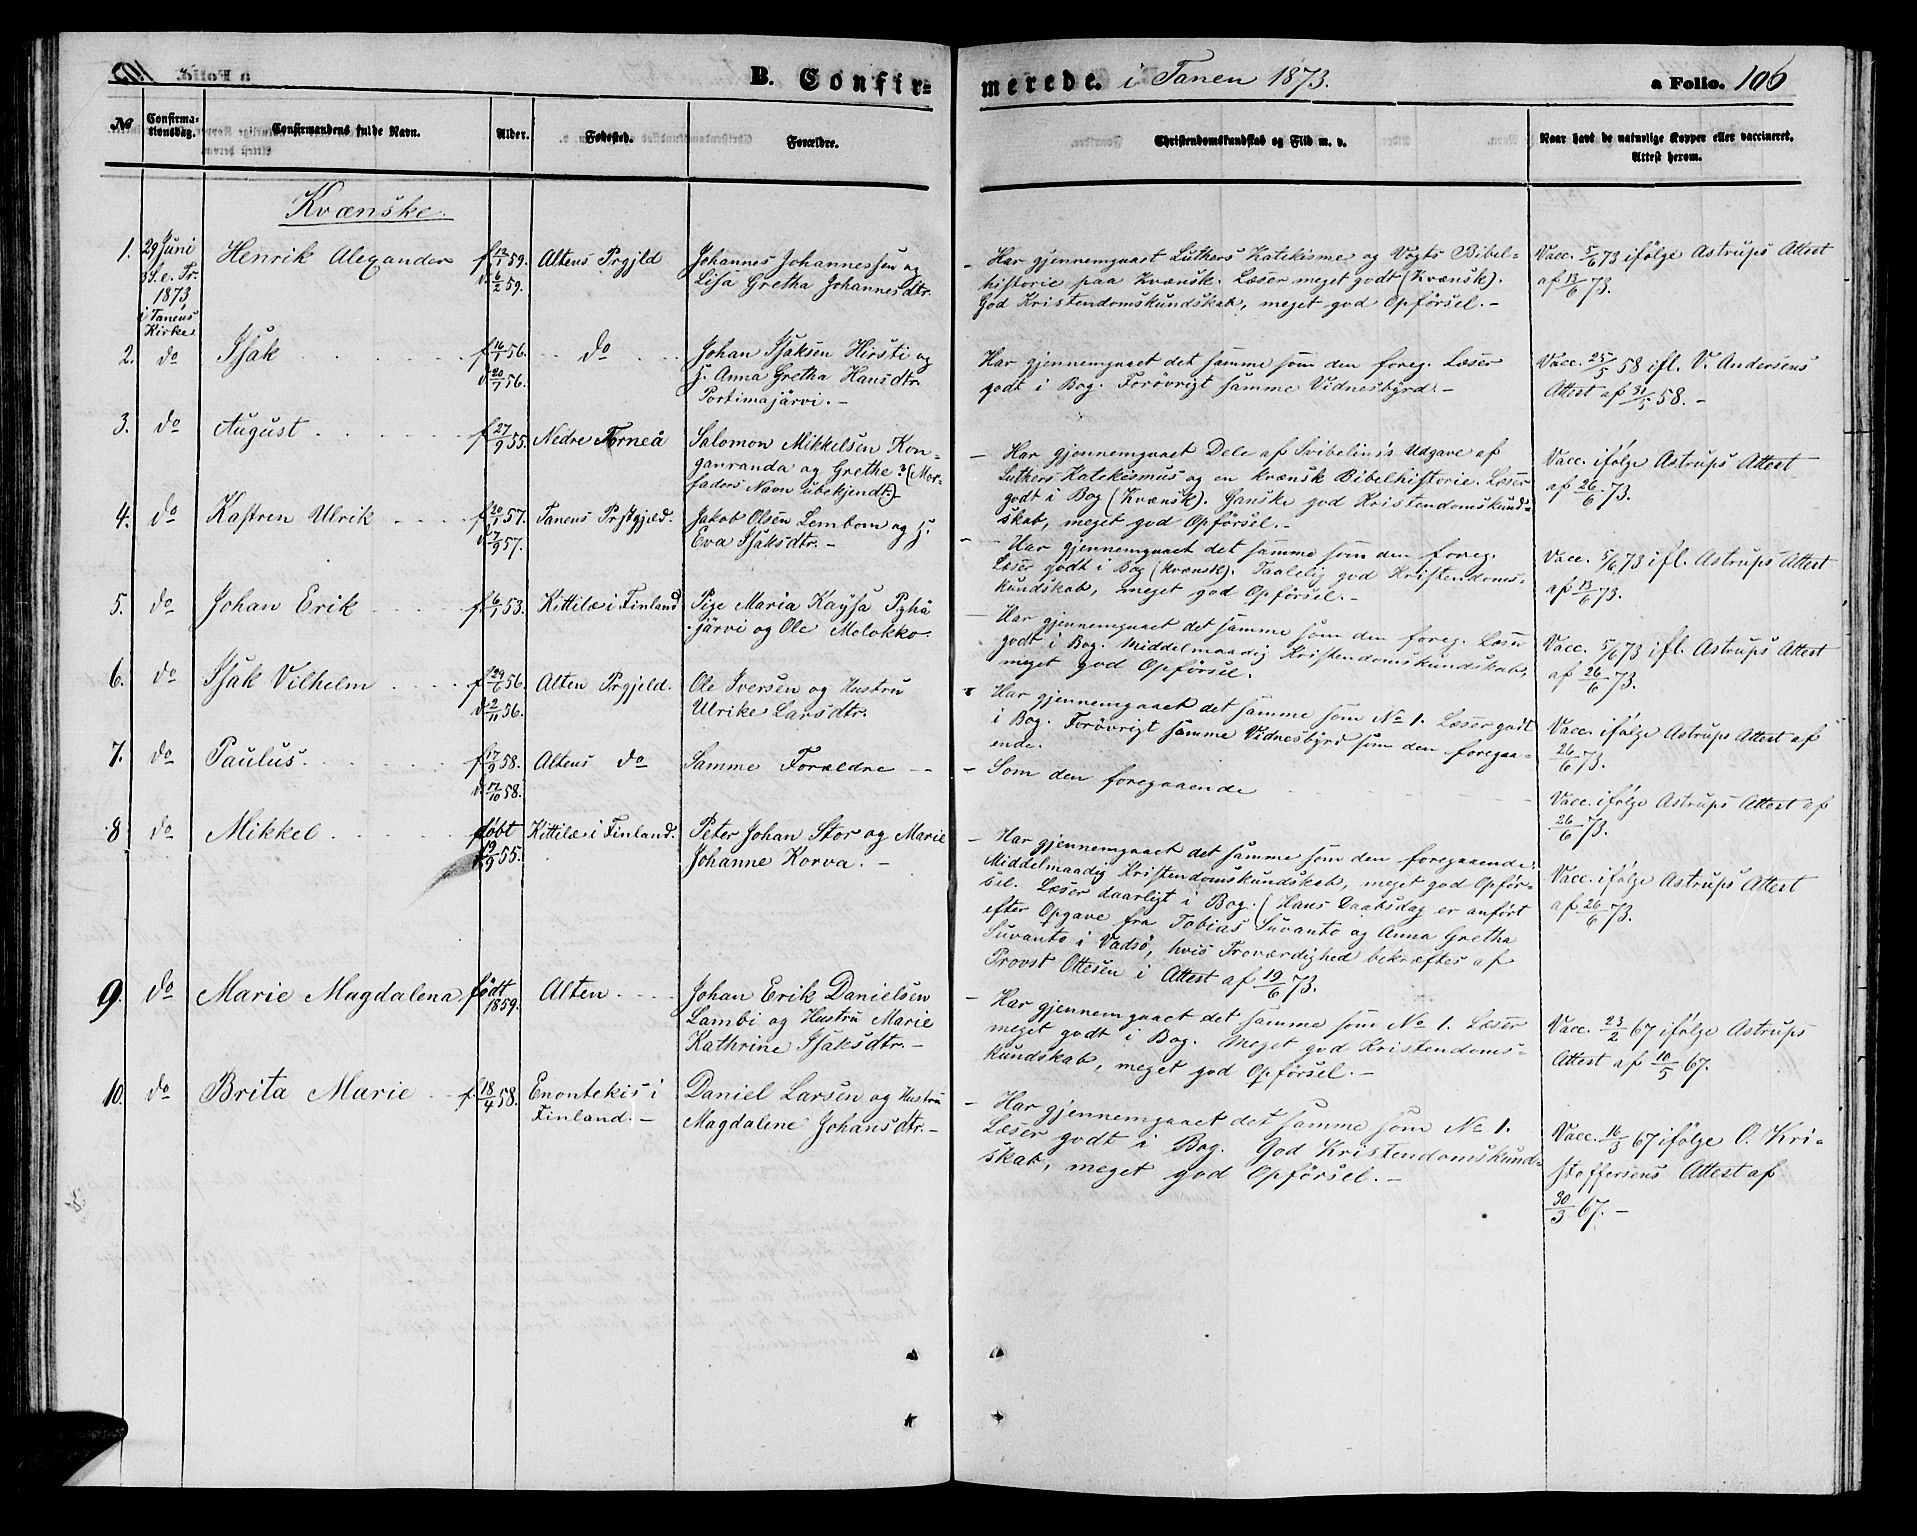 B. Confir-
merede. i Tanen 1873.
a Folio. 106
No
Confirma-
tionsdag.
Confirmandens fulde Navn.
Alder.
Fødested.
Forældre.
Christendomskundskab og Flid m. v.
Naar havt de naturlige Kopper eller vaccineret.
Attest herom.
Kvænske.
1.
29 Juni
3 S. e. Tr.
1873
i Tanens
Kirke
Henrik Alexander
f 12/1 59.
d. 6/2 59.
Altens Prgjld
Johannes Johannessen og
Lisa Gretha Johannesdtr.
- Har gjennemgaaet Luthers Katekisme og Vogts Bibel-
historie paa Kvænsk. Læser meget godt (Kvænsk).
God Kristendomskundskab, meget god Opførsel. -
Vacc. 5/6 73 ifölge Astrups Attest
af 13/6 73.
2.
do
Isak
f 16/1 56.
d 20/1 56.
do
Johan Isaksen Hirsti og
H. Anna Gretha Hansdtr.
Portimajärvi. -
Har gjennemgaaet det samme som den foreg. Læser
godt i Bog. Forövrigt samme Vidnesbyrd. -
Vacc. 25/5 58 ifl. V. Andersens
Attest af 31/5 58. -
3.
do
August
f 27/9 55.
Nedre Torneå
Salomon Mikkelsen Kon-
ganranda og Grethe? (Mor-
faders Navn ubekjendt.)
- Har gjennemgaaet Dele af Svibelius's Udgave af
Luthers Katekismus og en kvænsk Bibelhistorie. Læser
godt i Bog (Kvænsk). Ganske god Kristendomskund-
skab, meget god Opförsel. -
Vacc. ifölge Astrups Attest
af 26/6 73.
4.
do
Kastren Ulrik
f 20/1 57.
d 7/9 57.
Tanens Prstgjeld.
Jakob Olsen Lembom og H.
Eva Isaksdtr. -
- Har gjennemgaaet det samme som den foreg.
Læser godt i Bog (kvænsk). Taalelig god Kristendoms-
kundskab, meget god Opförsel. -
Vacc. 5/6 73 ifl. Astrups Attest
af 13/6 73.
5.
do
Johan Erik
f. 6/1 53.
Kittilæ i Finland
Pige Maria Kaysa Pyhä
järvi og Ole Molokko.
- Har gjennemgaaet det samme som den foreg. Læser
godt i Bog. Middelmaadig Kristendomskundskab,
meget god Opförsel.
Vacc. 5/6 73 ifl. Astrups Attest
af 26/6 73.
6.
do
Isak Vilhelm
f 29/6 56.
d 2/11 56.
Alten Prgjeld.
Ole Iversen og Hustru
Ulrike Larsdtr.
- Har gjennemgaaet det samme som No 1. Læser godt
i Bog. Forövrigt samme Vidnesbyrd som den foregaa-
ende.
Vacc. ifölge Astrups Attest af
26/6 73.
7.
do
Paulus
f 17/9 58.
d. 17/10 58.
Altens do
Samme Forældre
- Som den foregaaende
Vacc. ifölge Astrups Attest af
26/6 73.
8
do
Mikkel
født
19/9 55.
Kittilæ i Finland.
Peter Johan Stor og Marie
Johanne Korva. -
- Har gjennemgaaet det samme som den foregaaende.
Middelmaadig Kristendomskundskab, meget god Opför-
sel. Læser daarligt i Bog. (Hans Daabsdag er anfört
efter Opgave fra Tobias Suvanto og Anna Gretha
Suvanto i Vadsö, hvis Troværdighed bekræftes af
Provst Ottesen i Attest af 19/6 73.
Vacc. ifölge Astrups Attest
af 26/6 73.
9.
do
Marie Magdalena
født
1859.
Alten
Johan Erik Danielsen
Lambi og Hustru Marie
Kathrine Isaksdtr. -
- Har gjennemgaaet det samme som No 1. Læser
meget godt i Bog. Meget god Kristendoms-
kundskab, meget god Opförsel. -
Vacc. 23/2 67 ifölge Astrups
Attest af 10/5 67.
10.
do
Brita Marie
f. 18/4 58.
Enontekis i
Finland. -
Daniel Larsen og Hustru
Magdalene Johansdtr. -
- Har gjennemgaaet det samme som No 1.
Læser godt i Bog. God Kristendomskund-
skab, meget god Opförsel. -
Vacc. 16/3 67 ifölge O. Kri-
stoffersens Attest af
30/3 67. -